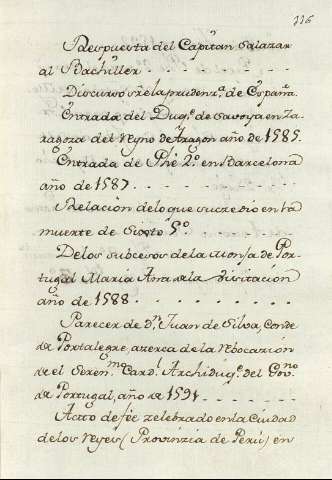 116
Respuesta del Capitan Salazar
al Bachiller
Discursos sre la prudenz.ª de España.
Entrada del Duq.e de Savoya en Za-
ragoza del Reyno de Aragon año de 1585.
Entrada de Phe 2.º en Barcelona
año de 1587
Relación de lo que sucedio en la
muerte de Sixto 5.º
De los subcesos de la Monja de Por-
tugal Maria Ana de la Visitación
año de 1588
Parecer de Dn Juan de Silva, Conde
de Portalegre, azerca de la Rebocazión
de el Seren.mo Card.l Archiduq.e del Gov.no
de Portugal, año de 1591
Acto de feé zelebrado en la Ciudad
de los Reyes (Provinzia de Perú) en